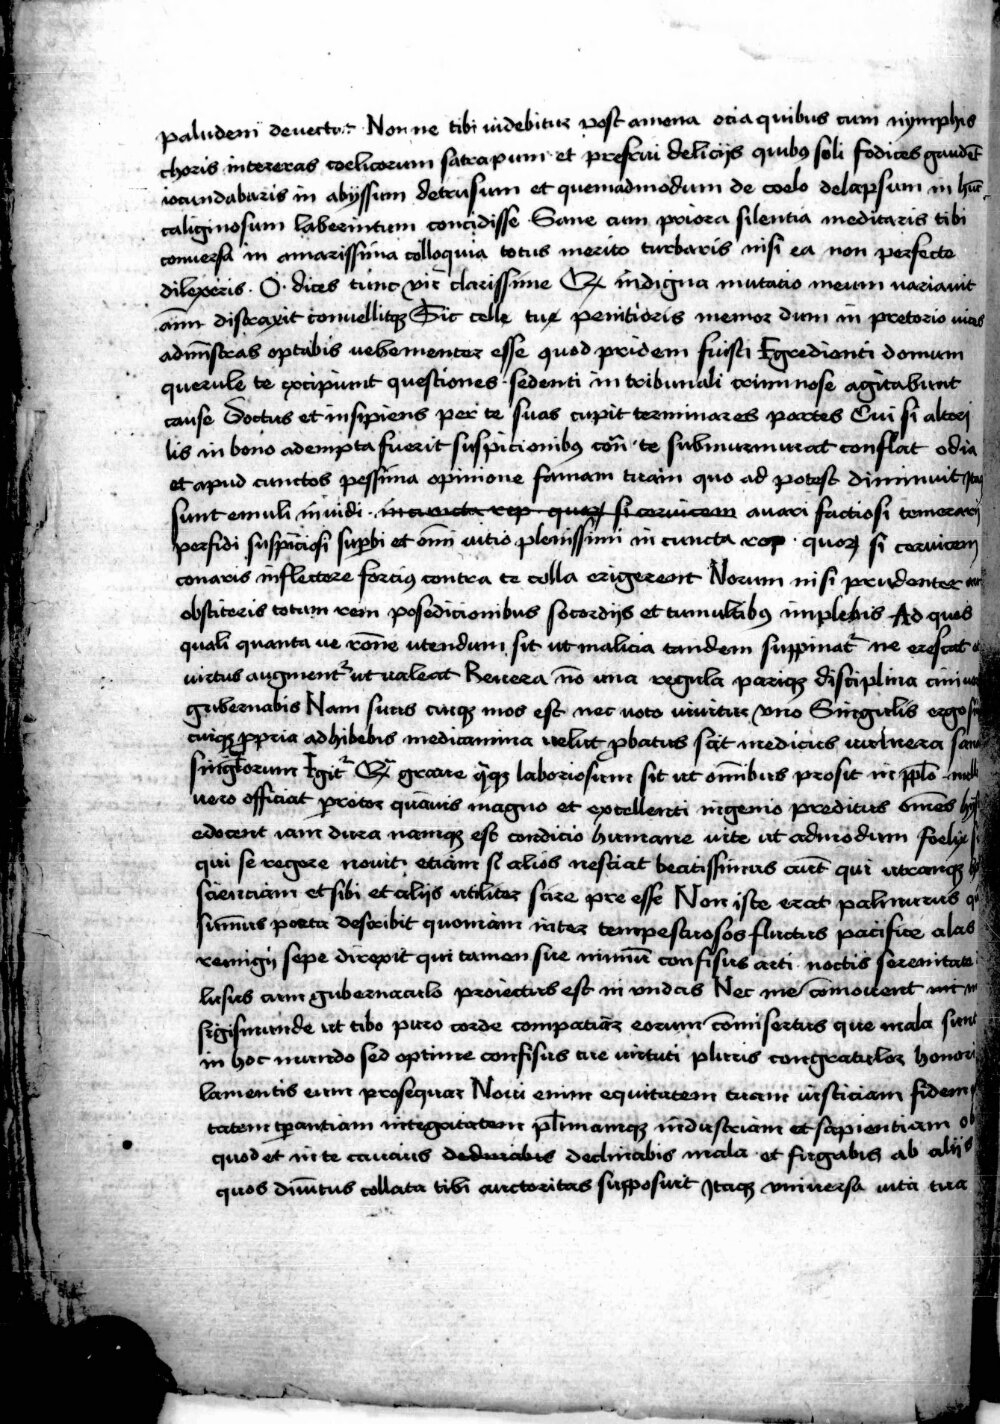 paludem deuectus Non ne tibi uidebitur post amena ocia quibus cum nymphis
choris intereras coelicorum satrapum et presrui delicijs quibus soli fodices gaudēt
iocundabaris in abyssum detrusum et quemadmodum de coelo delapsum in hūc
caliginosum laberintum concidisse Sane cum priora silentia meditaris tibi
conuersa in amarissima colloquia totus merito turbaris nisi ea non perfecte
dilexeris · O · dices tunc vir clarissime indigna mutatio meum uariauit
aīm distraxit conuellitqꝫ Sic celle tue penitioris memor dum in pretorio uices
admīstras optabis uehementer esse quod pridem fuisti Egredienti domum
querule te excipiunt questiones · sedenti in tribunali criminose agitabunt
cause Doctus et insipiens per te suas cupit terminare partes Cui si alteri
lis in bono adempta fuerit suspicionibus te submurmurat conflat odia
et apud cunctos pessima opinione famam tuam quo ad potest diminuit
sunt emuli inuidi · auari factiosi temerarij
perfidi suspiciosi supbi et om̄i uitio plenissimi in cuncta rep · quoꝝ si ceruicem
conaris inflectere forcius contra te colla erigerent Norum nisi prudenter
obstiteris totam rem posedicionibus socordijs et tumultibus implebis Ad quos
quali quanta ue rōne utendum sit ut malicia tandem suppinat᷑ ne crescat
uirtus augment᷑ ut ualeat Reuera nō una regula pariqꝫ disciplina
gubernabis Nam suus cuiqꝫ mos est nec uoto uiuitur vno Singulis ergo
cuiqꝫ ꝓpria adhibebis medicamina uelut ꝓbatus scit medicus uulnera
singlorum Igit᷑ graue laboriosum sit ut om̄ibus prosit in pplo
uero officiat pretor quāuis magno et excellenti ingenio preditus om̄es
edocent iam dura namqꝫ est condicio humane uite ut admodum foelix
qui se regere nouit etiam si alios nesciat beatissimus qui utramqꝫ
scienciam et sibi et alijs utiliter scire pre esse Non iste erat palinurus
sum̄us poeta describit quoniam inter tempestuosos fluctus pacifice alas
remigij sepe direxit qui tamen sue nimiū confisus arti noctis serenitate
lusus cum gubernaculo proiectus est in vndas Nec me cōmouent
sigismunde ut tibo puro corde compatiar eorum cōmisertus que mala sunt
in hoc mundo sed optime confisus tue uirtuti pluris congratulor honori
lamentis eum prosequar Noui enim equitatem tuam iusticiam fidem
tatem tꝑantiam integritatem pl̄imamqꝫ industriam et sapientiam ob
quod et in te cauius declinabis mala et fugabis ab aliis
quos diuītus collata tibi auctoritas supposuit Itaqꝫ vniuersa uita tua